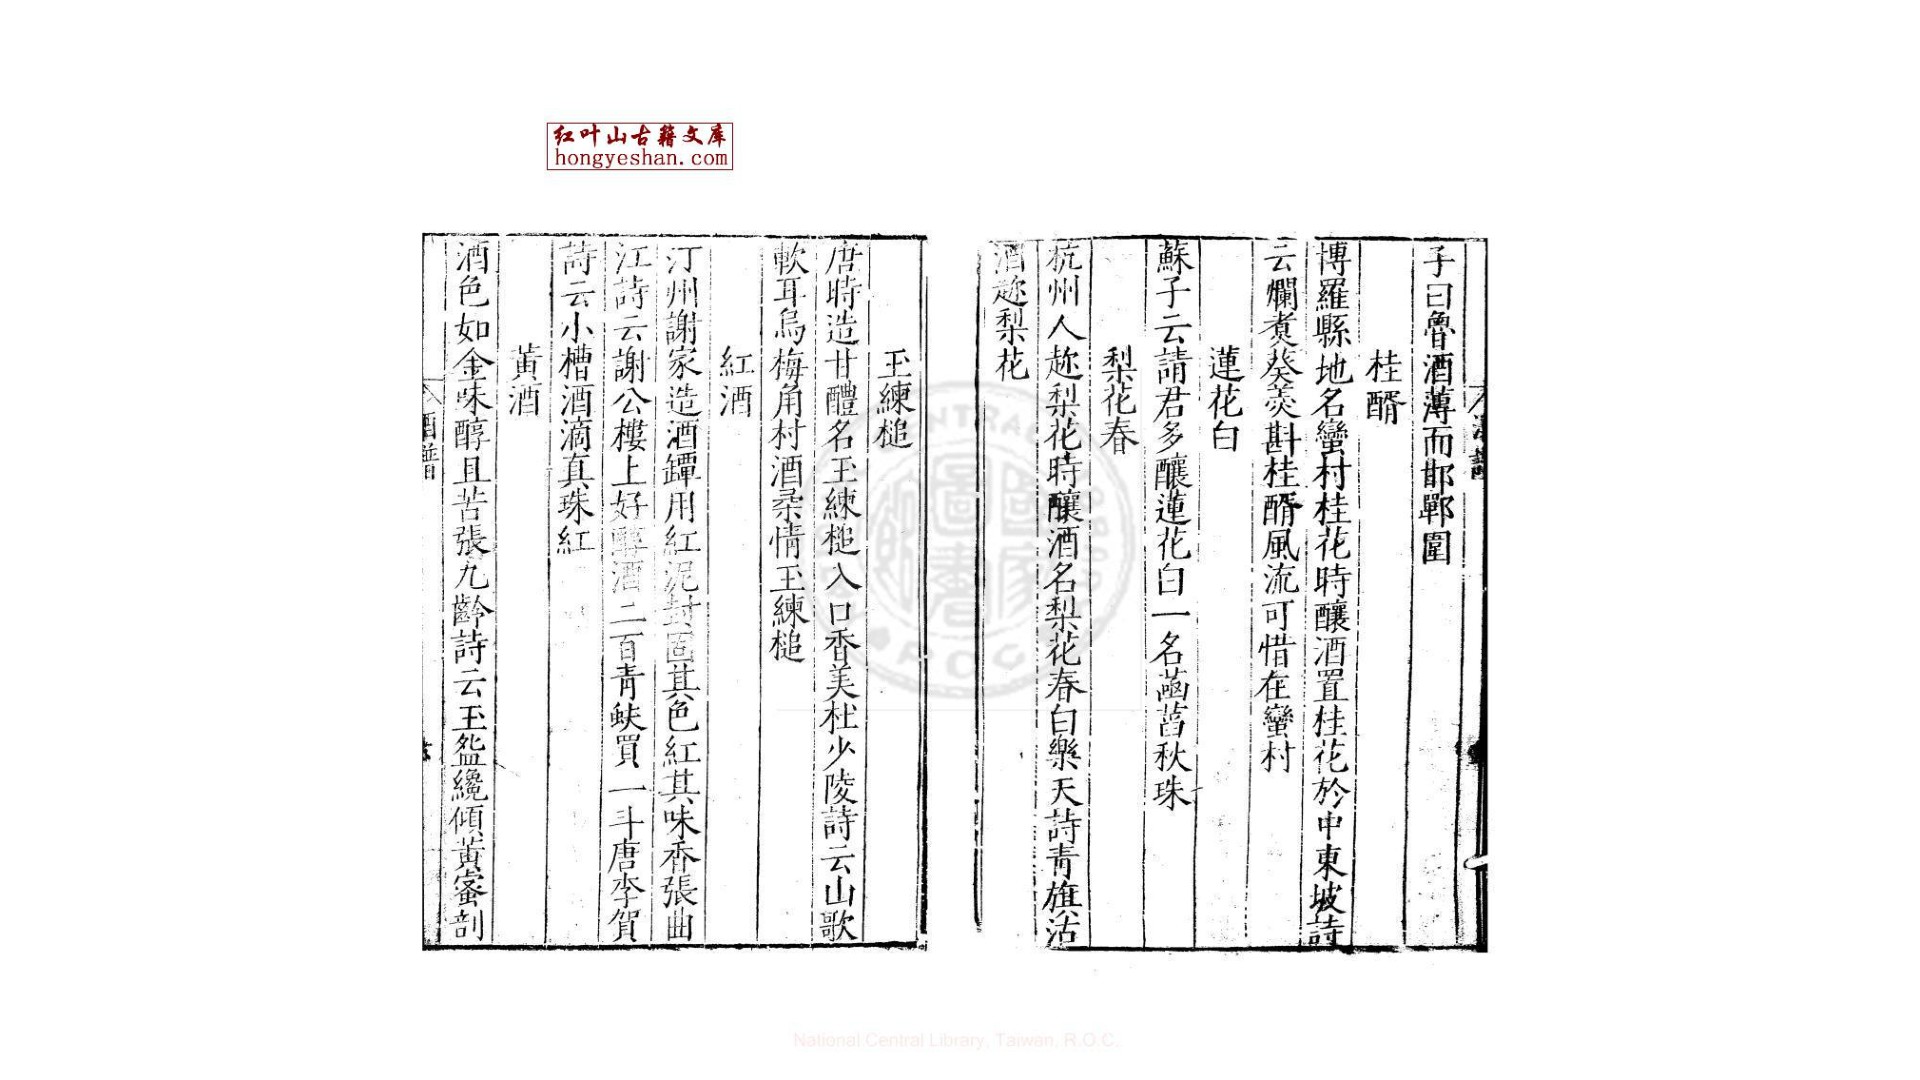 红叶山古籍文库
hongyeshan.com
子曰魯酒薄而邯鄲圍
桂醑
博羅縣地名蠻村桂花時釀酒置桂花於中東坡詩
云爛煮葵羹斟桂醑風流可惜在蠻村
蓮花白
蘇子云請君多釀蓮花白一名菡萏秋珠
梨花春
杭州人趂梨花時釀酒名梨花春白樂天詩青旗沽
酒趂梨花
玉練槌
唐時造甘醴名玉練槌入口香美杜少陵詩云山歌
軟耳烏梅角村酒柔情玉練槌
紅酒
汀州謝家造酒罈用紅泥封固其色紅其味香張曲
江詩云謝公樓上好醇酒二百青蚨買一斗唐李賀
詩云小槽酒滴真珠紅
黃酒
酒色如金味醇且苦張九齡詩云玉盌纔傾黃蜜剖
酒譜
National Central Library, Taiwan, R.O.C.